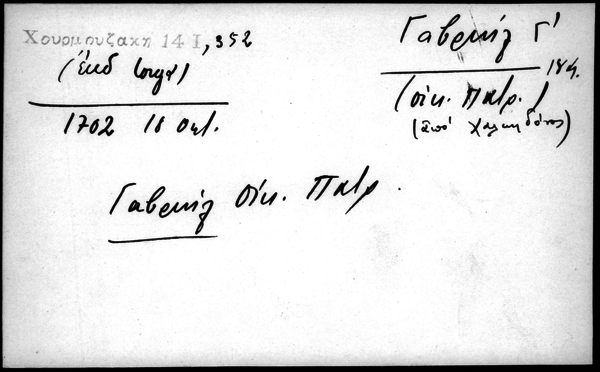 Χουρμουζακη 14 I, 352
(ἐκδ
1702 18 Οκτ.
Γαβριήλ Γ'
184.
(οἰκ. Πατρ.)
(ἀπό Χαλκηδόνος)
Γαβριήλ οἰκ. Πατρ.